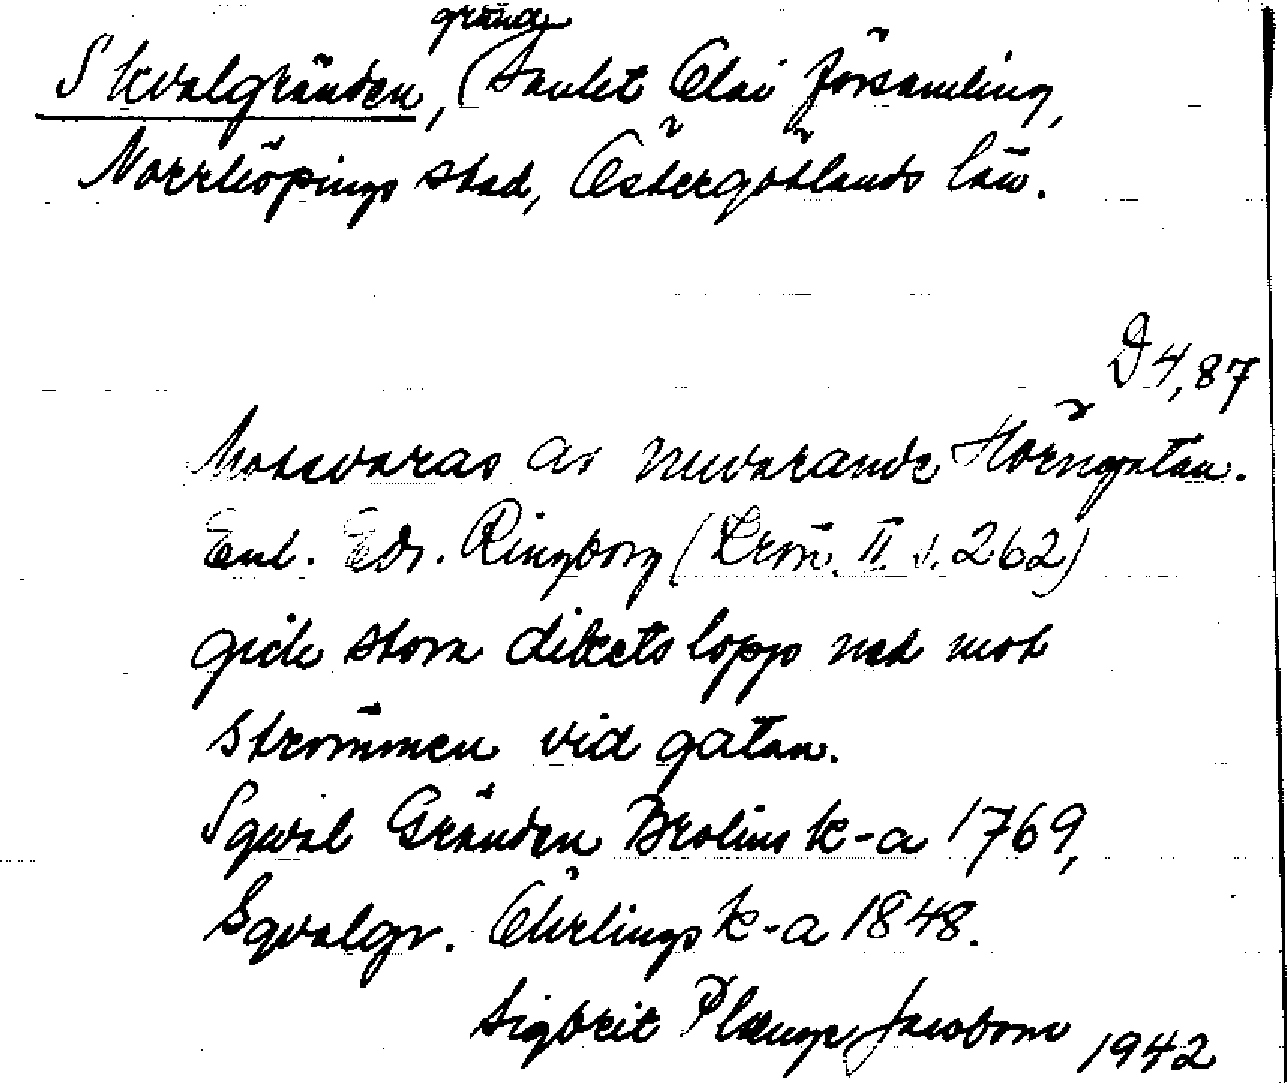 gränd
Skvalgränden, (Sankt Olai församling,
Norrköpings stad, Östergötlands län.
D4,87
Motsvaras av nuvarande Hörngatan.
Enl. Edv. Ringborg (Krön. II s. 262)
gick stora dikets lopp ned mot
strömmen vid gatan.
Sqwal Gränden Brolins k-a 1769,
Sqvalgr. Öhrlings k-a 1848.
Sigbrit Plænge Jacobson 1942